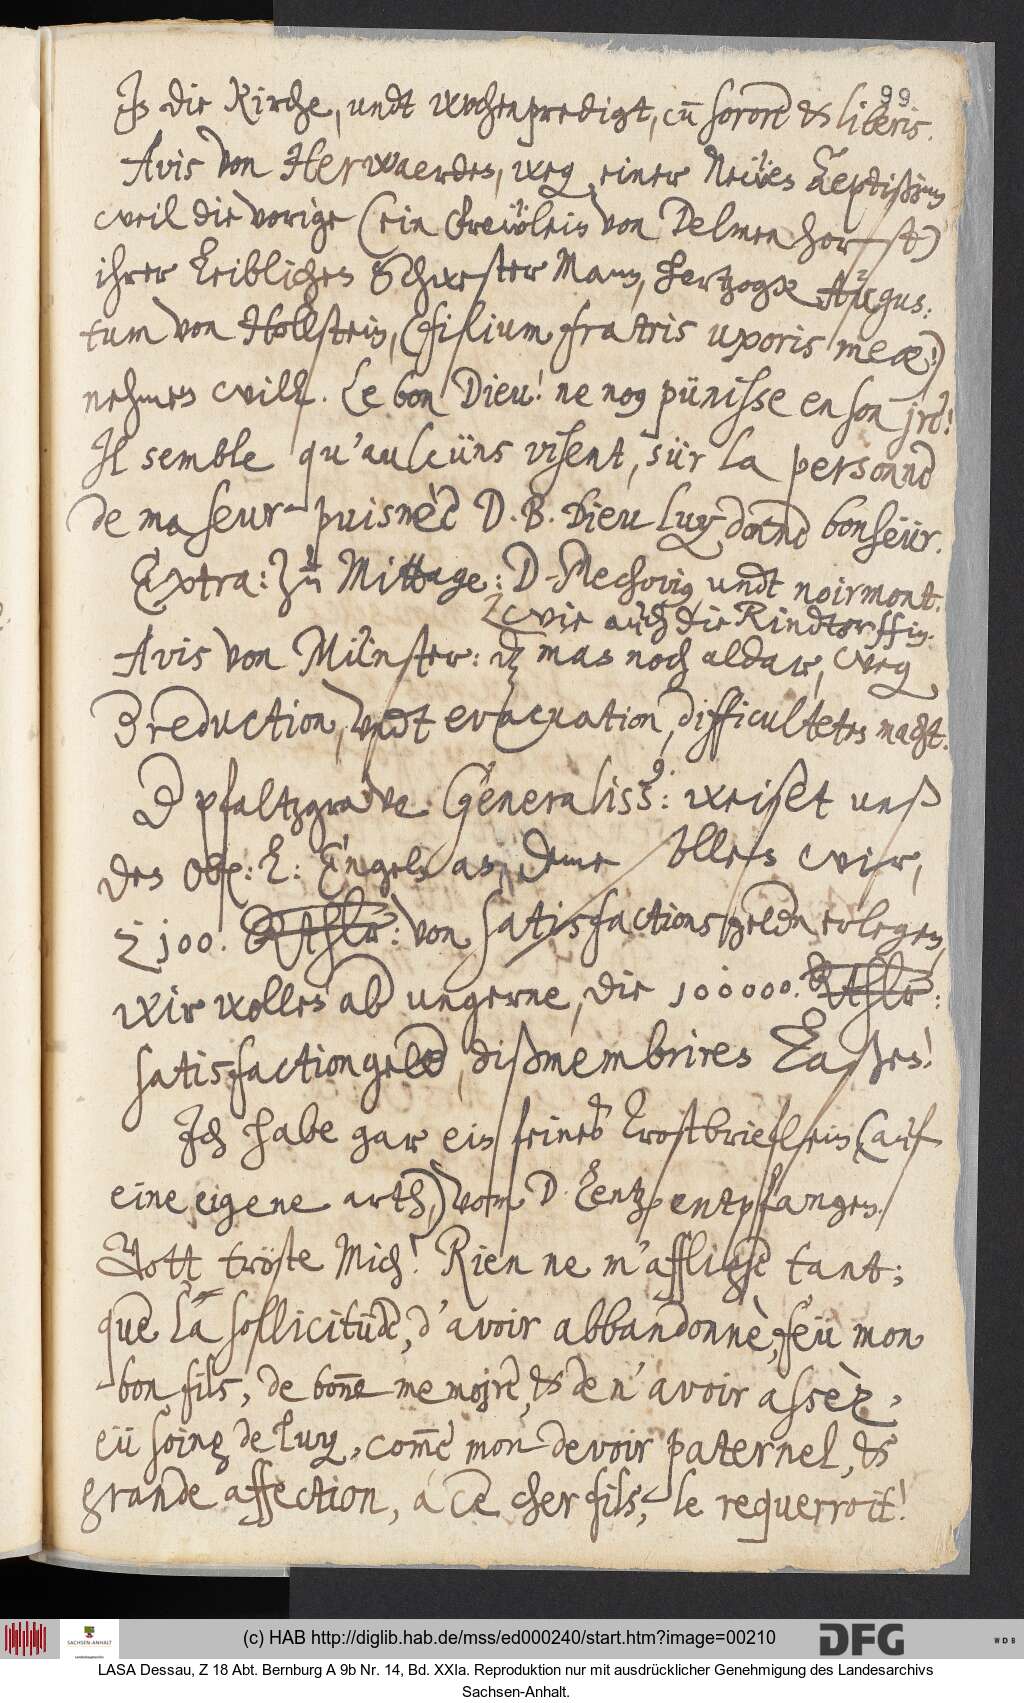 99
In die Kirche, undt wochenpredigt, cū sorore & liberis.
Avis von Herwaerden, weg einer Neẅen Aeptißinn
weil die vorige (ein Freẅlein von Delmenhorst)
ihrer Leiblichen Schwester Mann, Hertzogk Augus:
tum von Hollstein, (filium fratris uxoris meæ!)
nehmen will. Le bon Dieu! ne nos pünisse en son jre!
Il semble qu'aulcüns visent, sür la personne
de ma seur puisnèe D. B. Dieu luy donne bonheür.
Extra: zu Mittage: D. Mechovig undt noirmont.
wie auch die Rindtorffin.
Avis von Münster: dz mas noch aldar, weg
reduction, vndt evacuation, difficulteten macht.
D pfaltzgrave Generaliss9: weiset unß
den Obr: L: Engeln an, deme sollen wir,
2100. Rthlr: von satisfactionsgeldn erlegen,
wir wollen ab ungerne, die 100000. Rthlr:
satisfactiongeld, dißmembriren Laßen!
Ich habe gar ein feines Trostbrieflein (auf
eine eigene arth,) vom D. Lentz entpfangen.
Gott tröste Mich! Rien ne m'afflige tant;
que la sollicitüde, d'avoir abbandonnè, feü mon
bon fils, de bōne memoire, & de n'avoir assèz,
eü soing de luy, com̄e mon devoir paternel, &
grande affection, a ce cher fils, le requerroit!
(c) HAB http://diglib.hab.de/mss/ed000240/start.htm?image=00210
DFG
WDB
SACHSEN-ANHALT
LASA Dessau, Z 18 Abt. Bernburg A 9b Nr. 14, Bd. XXIa. Reproduktion nur mit ausdrücklicher Genehmigung des Landesarchivs
Sachsen-Anhalt.